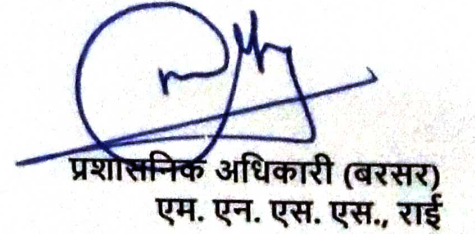 प्रशासनिक अधिकारी (बरसर)
एम. एन. एस. एस., राई